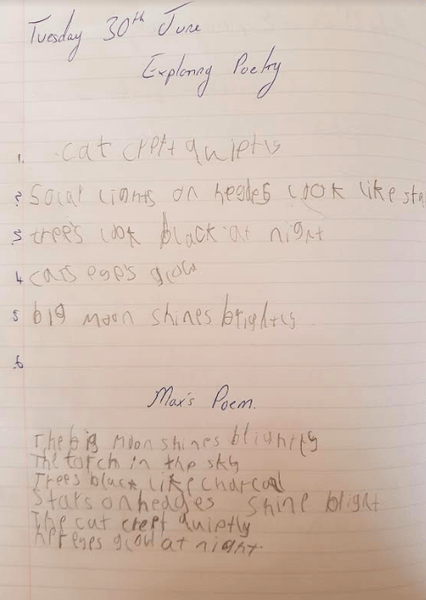 Tuesday 30th June
Exploring Poetry
1. cat creft quietly
2 Solal lights on hegdes look like sta
3 trees look black at night
4 cats eye's glow
5 big moon shines brightly
6
Max's Poem.
The big moon shines blightly
The torch in the sky
Trees black like charcoal
Stars on hedges shine blight
The cat creft quietly
her eyes glow at night.